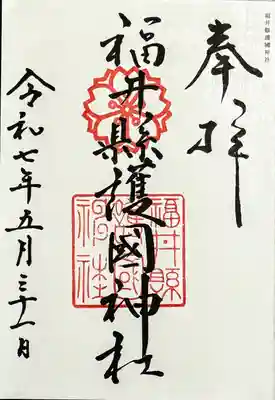 福井縣護國神社
奉拝
福井縣護國神社
福井縣護國神社
令和七年五月三十一日